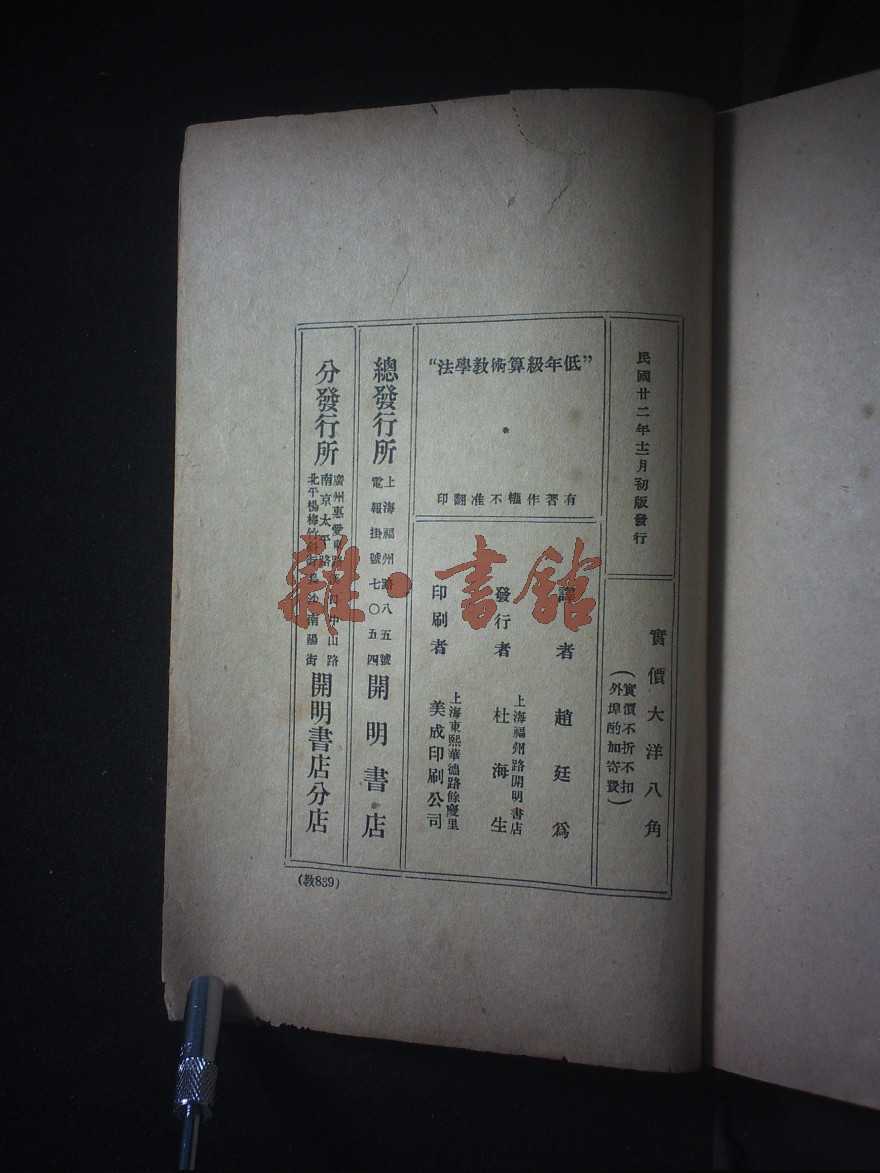 民國廿二年十二月初版發行
實價大洋八角
(實價不折不扣
外埠酌加寄費)
“低年級算術教學法”
有著作權不准翻印
譯者 趙廷爲
發行者 杜海生
上海福州路開明書店
印刷者 美成印刷公司
上海東熙華德路餘慶里
總發行所 開明書店
上海福州路八五號
電報掛號七〇五四
分發行所 開明書店分店
廣州惠愛東路 中山路
南京太平路 長沙南陽街
北平楊梅竹斜街
(教839)
雜·書館